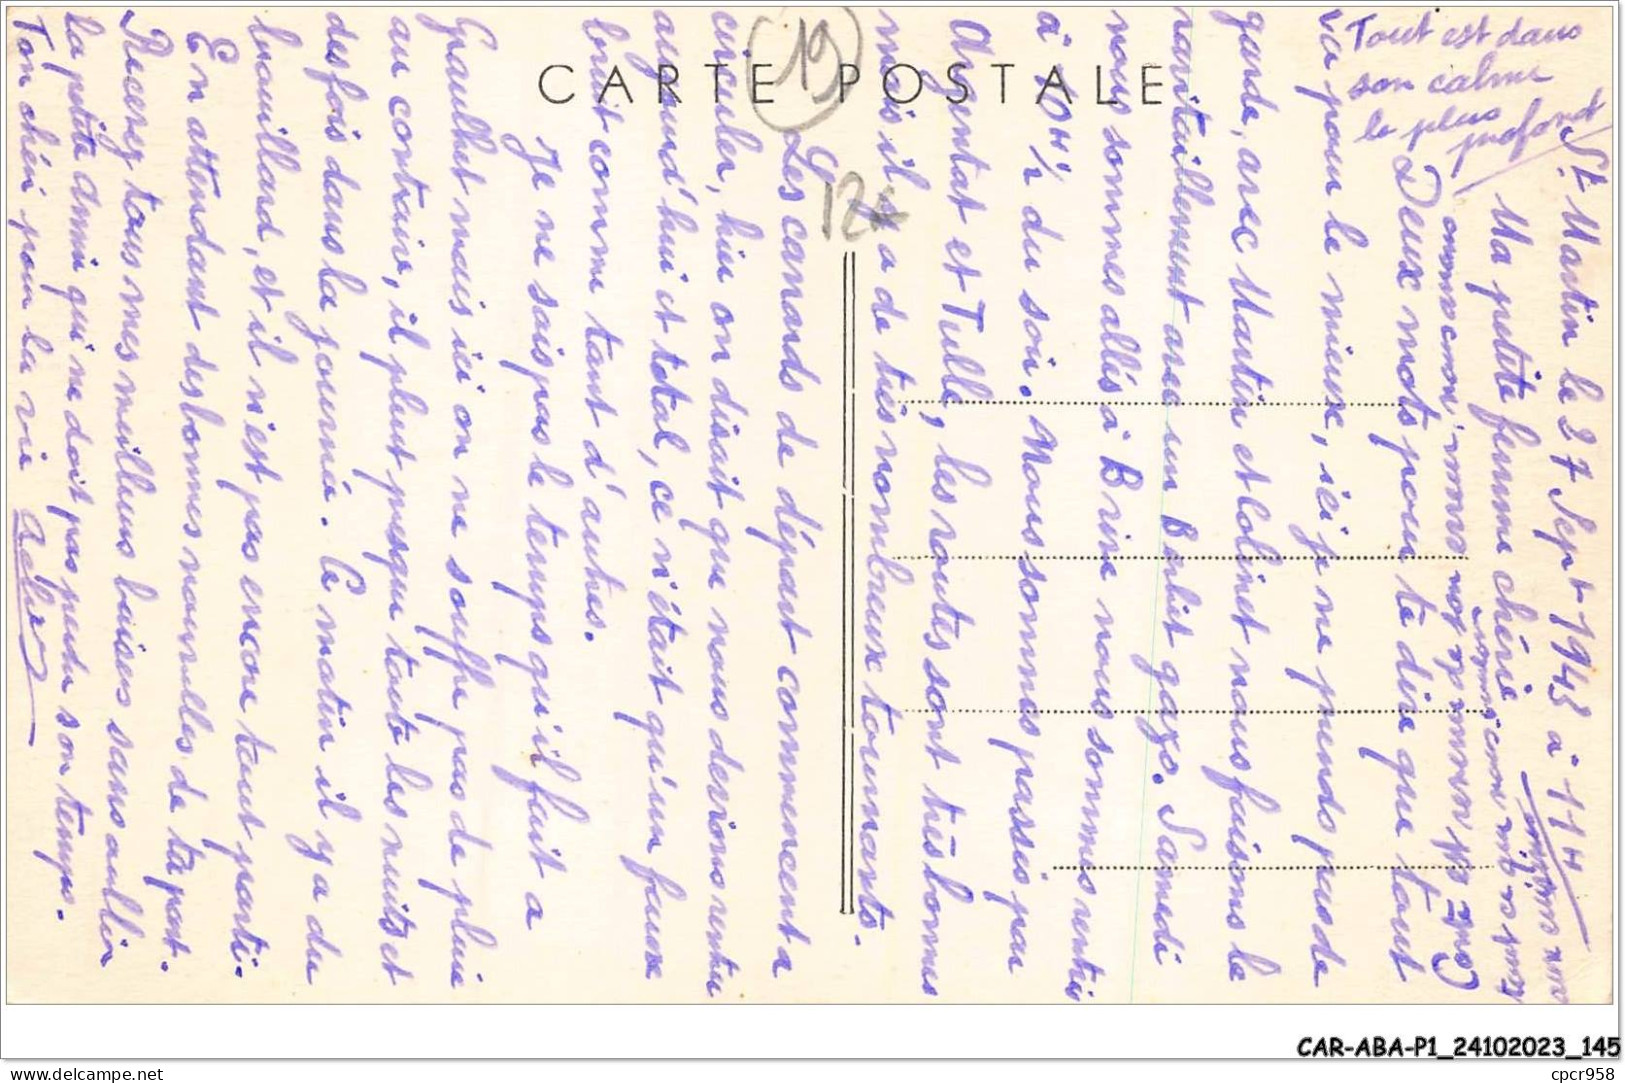 CARTE POSTALE
19
12
Tout est dans
son calme
le plus
profond
St Martin le 27 Sept 1943 à 11H
Ma petite femme chérie
Deux mots pour te dire que tout
va pour le mieux, ici je ne prends pas de
garde, avec Martin et Colinet nous faisons le
ravitaillement avec un Berliet gazo. Samedi
nous sommes allés à Brive nous sommes rentrés
à 10H½ du soir. Nous sommes passés par
Argentat et Tulle, les routes sont très bonnes
mais il y a de très nombreux tournants.
Les canards de départ commencent a
circuler, hier on disait que nous devions rentrer
aujourd'hui et total, ce n'était qu'un faux
bruit comme tant d'autres.
Je ne sais pas le temps qu'il fait a
Graulhet mais ici on ne souffre pas de pluie
au contraire, il pleut presque toute les nuits et
des fois dans la journée. Ce matin il y a du
brouillard, et il n'est pas encore tout parti.
En attendant des bonnes nouvelles de ta part.
Recevez tous mes meilleurs baises sans oublier
la petite amie qui ne doit pas perdre son temps.
Ton chéri pour la vie
CAR-ABA-P1_24102023_145
delcampe.net
cpcr958